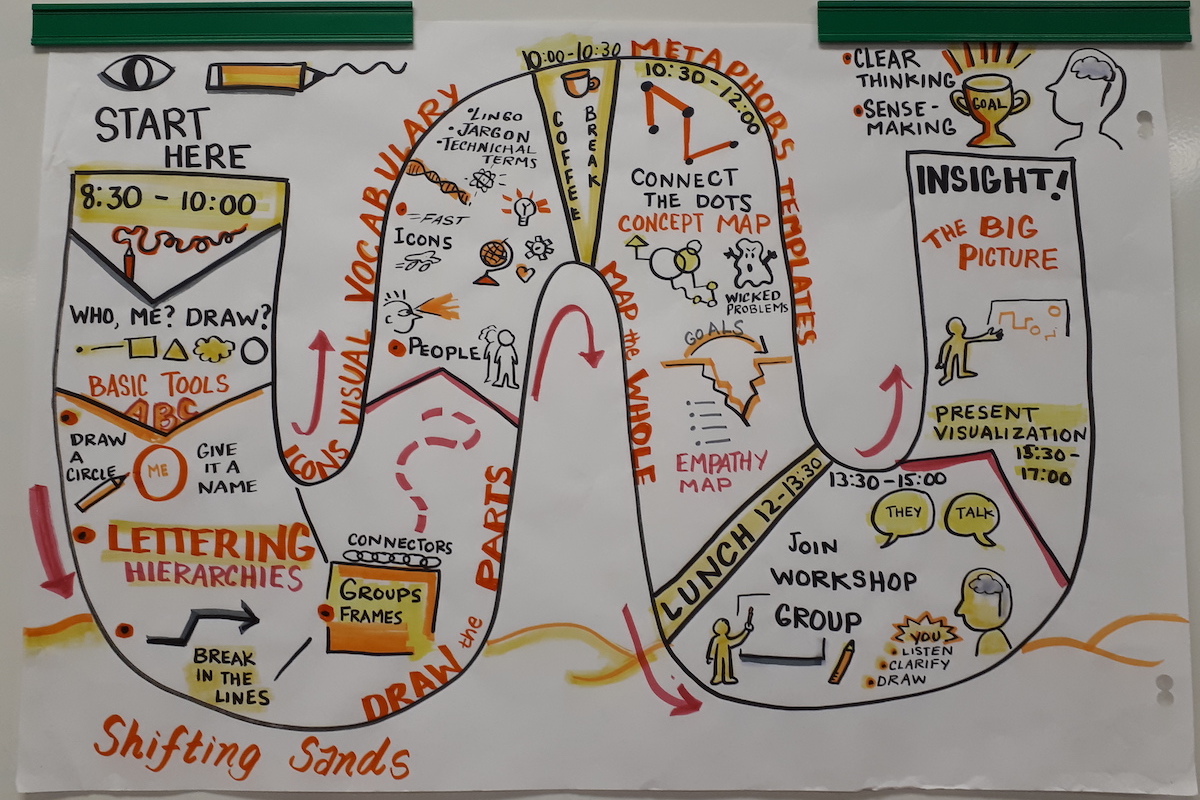 START
HERE
8:30 - 10:00
WHO, ME? DRAW?
BASIC TOOLS
ABC
DRAW
A
CIRCLE
ME
GIVE
IT A
NAME
LETTERING
HIERARCHIES
BREAK
IN THE
LINES
CONNECTORS
GROUPS
FRAMES
DRAW the PARTS
ICONS VISUAL VOCABULARY
• LINGO
• JARGON
• TECHNICHAL
TERMS
FAST
ICONS
PEOPLE
10:00-10:30
COFFEE
BREAK
METAPHORS TEMPLATES
10:30-12:00
CONNECT
THE DOTS
CONCEPT MAP
WICKED
PROBLEMS
GOALS
EMPATHY
MAP
MAP the WHOLE
LUNCH 12-13:30
13:30-15:00
THEY
TALK
JOIN
WORKSHOP
GROUP
YOU
• LISTEN
• CLARIFY
• DRAW
PRESENT
VISUALIZATION
15:30-
17:00
THE BIG
PICTURE
INSIGHT!
• CLEAR
THINKING
• SENSE-
MAKING
GOAL
Shifting Sands